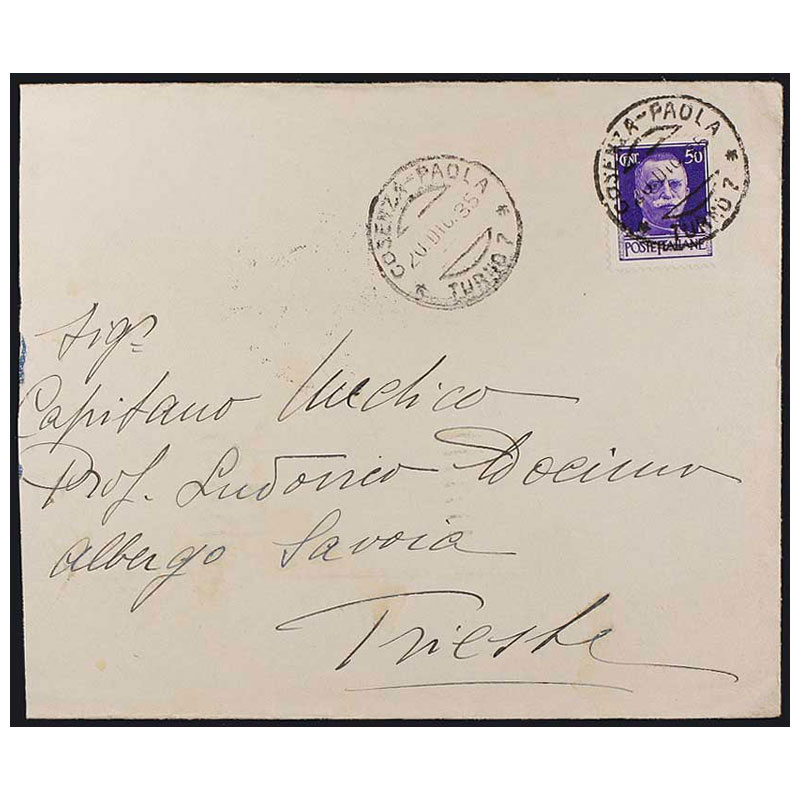 COSENZA-PAOLA
20.DIC.35
* TURNO 7 *
COSENZA-PAOLA
* TURNO 7 *
CENT. 50
POSTE ITALIANE
Sigr
Capitano Medico
Prof. Ludovico Docimo
Albergo Savoia
Trieste